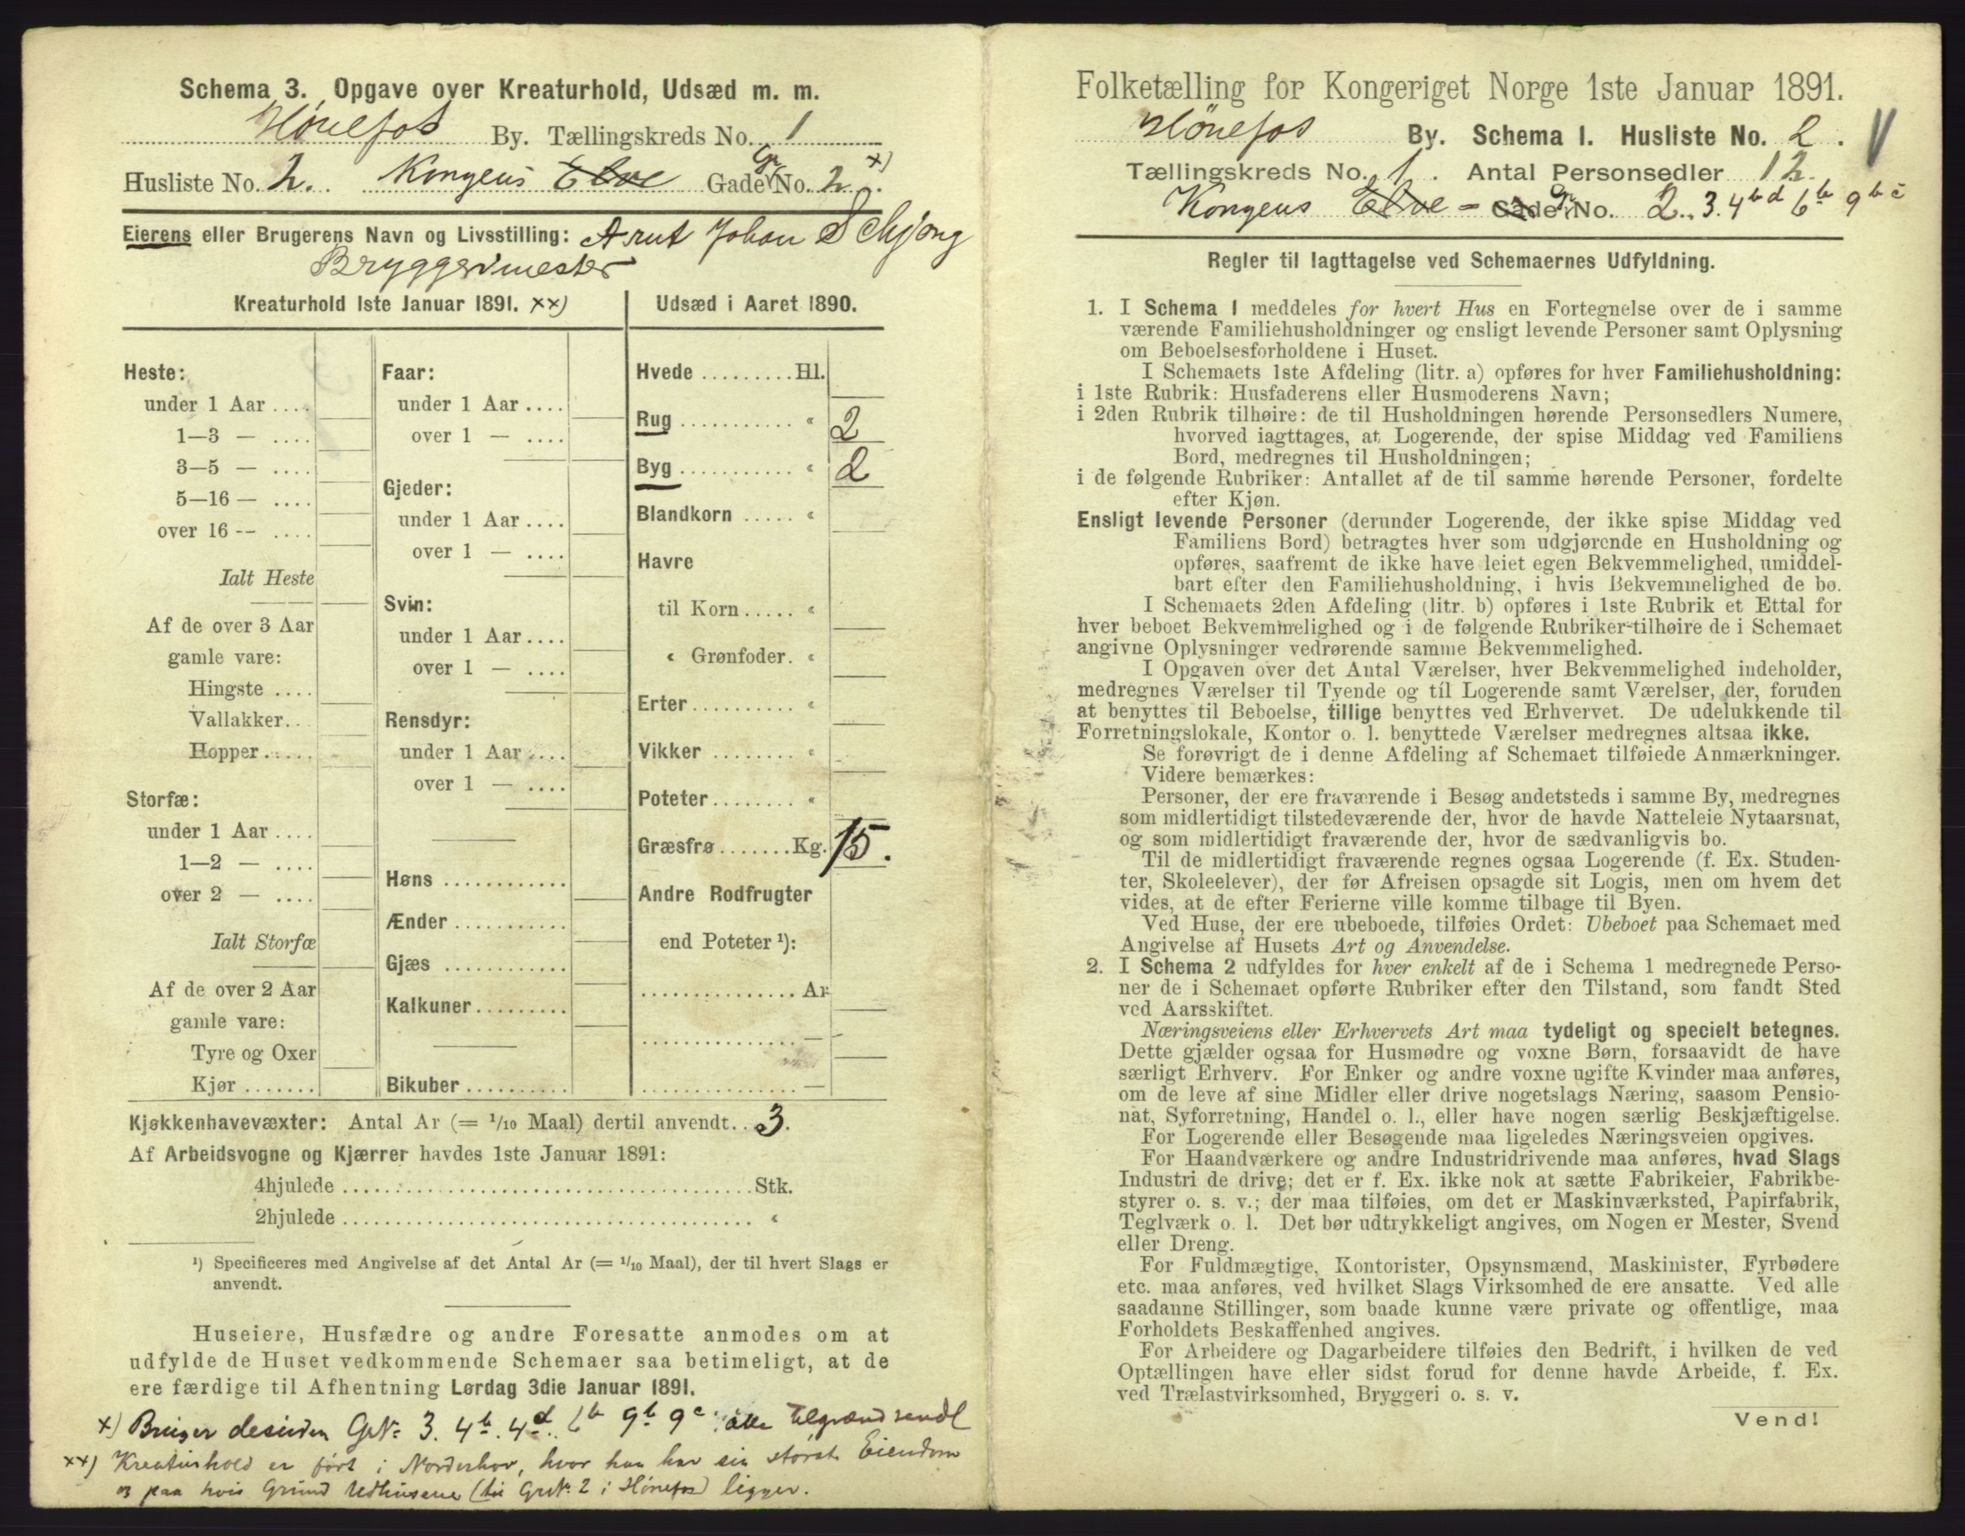 Schema 3. Opgave over Kreaturhold, Udsæd m. m.
Hönefos By. Tællingskreds No. 1
Husliste No. 2. Kongens Elve Gade Gr No. 2 x)
Eierens eller Brugerens Navn og Livsstilling: Arnt Johan Schjong
Bryggerimester
Kreaturhold 1ste Januar 1891. xx)
Heste:
under 1 Aar ....
1—3 — ....
3—5 — ....
5—16 — ....
over 16 -- ....
Ialt Heste
Af de over 3 Aar
gamle vare:
Hingste ....
Vallakker...
Hopper .....
Storfæ:
under 1 Aar ....
1—2 — ....
over 2 — ....
Ialt Storfæ
Af de over 2 Aar
gamle vare:
Tyre og Oxer
Kjør .......
Faar:
under 1 Aar ....
over 1 — ....
Gjeder:
under 1 Aar ....
over 1 — ....
Svin:
under 1 Aar ....
over 1 — ....
Rensdyr:
under 1 Aar ....
over 1 — ....
Høns ............
Ænder ...........
Gjæs ............
Kalkuner.........
Bikuber ..........
Udsæd i Aaret 1890.
Hvede .........Hl.
Rug ........... « 2
Byg ........... « 2
Blandkorn ..... «
Havre
til Korn ..... «
« Grønfoder. «
Erter .......... «
Vikker ......... «
Poteter......... «
Græsfrø .......Kg. 15.
Andre Rodfrugter
end Poteter ¹):
...............Ar
............... —
............... —
Kjøkkenhavevæxter: Antal Ar (= 1/10 Maal) dertil anvendt.. 3.
Af Arbeidsvogne og Kjærrer havdes 1ste Januar 1891:
4hjulede ........................................Stk.
2hjulede ........................................ «
¹) Specificeres med Angivelse af det Antal Ar (= 1/10 Maal), der til hvert Slags er
anvendt.
Huseiere, Husfædre og andre Foresatte anmodes om at
udfylde de Huset vedkommende Schemaer saa betimeligt, at de
ere færdige til Afhentning Lørdag 3die Januar 1891.
x) Bruger desuden GrN: 3. 4b. 4d. 6b 9b 9c. alle tilgrændsende
xx) Kreaturhold er ført i Norderhov, hvor han har sin største Eiendom
og paa hvis Grund Udhusene (til GrN: 2 i Hönefos) ligger.
Folketælling for Kongeriget Norge 1ste Januar 1891.
Hönefos By. Schema I. Husliste No. 2. V
Tællingskreds No. 1. Antal Personsedler 12.
Kongens Elve - Gade Gr No. 2., 3. 4 b d 6 b 9 b c
Regler til Iagttagelse ved Schemaernes Udfyldning.
1. I Schema 1 meddeles for hvert Hus en Fortegnelse over de i samme
værende Familiehusholdninger og ensligt levende Personer samt Oplysning
om Beboelsesforholdene i Huset.
I Schemaets 1ste Afdeling (litr. a) opføres for hver Familiehusholdning:
i 1ste Rubrik: Husfaderens eller Husmoderens Navn;
i 2den Rubrik tilhøire: de til Husholdningen hørende Personsedlers Numere,
hvorved iagttages, at Logerende, der spise Middag ved Familiens
Bord, medregnes til Husholdningen;
i de følgende Rubriker: Antallet af de til samme hørende Personer, fordelte
efter Kjøn.
Ensligt levende Personer (derunder Logerende, der ikke spise Middag ved
Familiens Bord) betragtes hver som udgjørende en Husholdning og
opføres, saafremt de ikke have leiet egen Bekvemmelighed, umiddel-
bart efter den Familiehusholdning, i hvis Bekvemmelighed de bo.
I Schemaets 2den Afdeling (litr. b) opføres i 1ste Rubrik et Ettal for
hver beboet Bekvemmelighed og i de følgende Rubriker tilhøire de i Schemaet
angivne Oplysninger vedrørende samme Bekvemmelighed.
I Opgaven over det Antal Værelser, hver Bekvemmelighed indeholder,
medregnes Værelser til Tyende og til Logerende samt Værelser, der, foruden
at benyttes til Beboelse, tillige benyttes ved Erhvervet. De udelukkende til
Forretningslokale, Kontor o. l. benyttede Værelser medregnes altsaa ikke.
Se forøvrigt de i denne Afdeling af Schemaet tilføiede Anmærkninger.
Videre bemærkes:
Personer, der ere fraværende i Besøg andetsteds i samme By, medregnes
som midlertidigt tilstedeværende der, hvor de havde Natteleie Nytaarsnat,
og som midlertidigt fraværende der, hvor de sædvanligvis bo.
Til de midlertidigt fraværende regnes ogsaa Logerende (f. Ex. Studen-
ter, Skoleelever), der før Afreisen opsagde sit Logis, men om hvem det
vides, at de efter Ferierne ville komme tilbage til Byen.
Ved Huse, der ere ubeboede, tilføies Ordet: Ubeboet paa Schemaet med
Angivelse af Husets Art og Anvendelse.
2. I Schema 2 udfyldes for hver enkelt af de i Schema 1 medregnede Perso-
ner de i Schemaet opførte Rubriker efter den Tilstand, som fandt Sted
ved Aarsskiftet.
Næringsveiens eller Erhvervets Art maa tydeligt og specielt betegnes.
Dette gjælder ogsaa for Husmødre og voxne Børn, forsaavidt de have
særligt Erhverv. For Enker og andre voxne ugifte Kvinder maa anføres,
om de leve af sine Midler eller drive nogetslags Næring, saasom Pensio-
nat, Syforretning, Handel o. l., eller have nogen særlig Beskjæftigelse.
For Logerende eller Besøgende maa ligeledes Næringsveien opgives.
For Haandværkere og andre Industridrivende maa anføres, hvad Slags
Industri de drive; det er f. Ex. ikke nok at sætte Fabrikeier, Fabrikbe-
styrer o. s. v.; der maa tilføies, om det er Maskinværksted, Papirfabrik,
Teglværk o. l. Det bør udtrykkeligt angives, om Nogen er Mester, Svend
eller Dreng.
For Fuldmægtige, Kontorister, Opsynsmænd, Maskinister, Fyrbødere
etc. maa anføres, ved hvilket Slags Virksomhed de ere ansatte. Ved alle
saadanne Stillinger, som baade kunne være private og offentlige, maa
Forholdets Beskaffenhed angives.
For Arbeidere og Dagarbeidere tilføies den Bedrift, i hvilken de ved
Optællingen have eller sidst forud for denne havde Arbeide, f. Ex.
ved Trælastvirksomhed, Bryggeri o. s. v.
Vend!